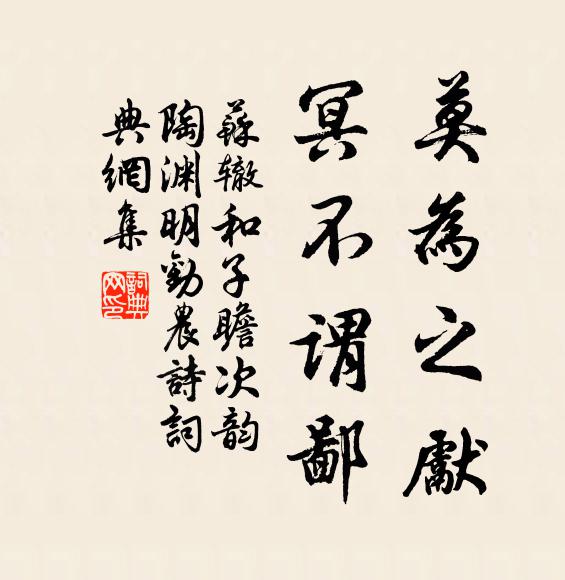 莫為之獻
冥不謂鄙
蘇轍和子瞻次韵
陶渊明勸農詩詞
典網集
詞典网印